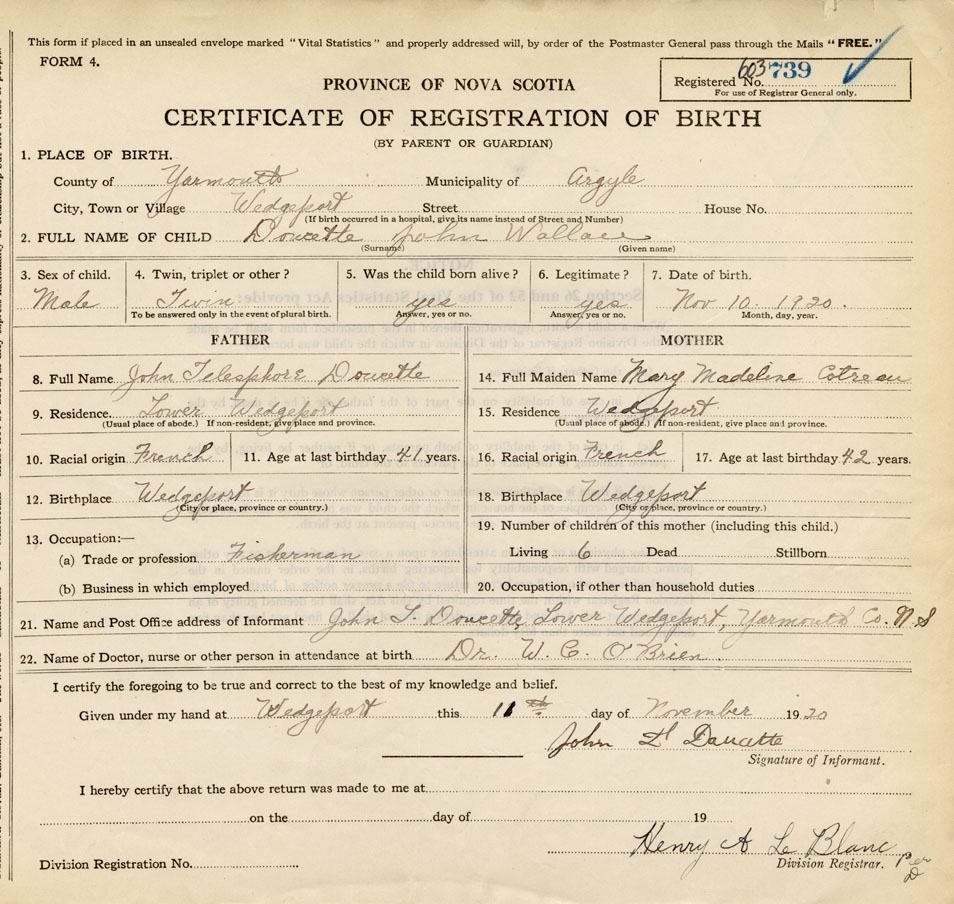 This form if placed in an unsealed envelope marked "Vital Statistics" and properly addressed will, by order of the Postmaster General pass through the Mails "FREE."
FORM 4.
Registered No. 603739
For use of Registrar General only.
PROVINCE OF NOVA SCOTIA
CERTIFICATE OF REGISTRATION OF BIRTH
(BY PARENT OR GUARDIAN)
1. PLACE OF BIRTH.
County of Yarmouth Municipality of Argyle
City, Town or Village Wedgeport Street House No.
(If birth occurred in a hospital, give its name instead of Street and Number)
2. FULL NAME OF CHILD Doucette John Wallace
(Surname) (Given name)
3. Sex of child. 4. Twin, triplet or other? 5. Was the child born alive? 6. Legitimate? 7. Date of birth.
Male Twin yes yes Nov 10. 1920.
To be answered only in the event of plural birth. Answer, yes or no. Answer, yes or no. Month, day, year.
FATHER MOTHER
8. Full Name John Telesphore Doucette 14. Full Maiden Name Mary Madeline Cotreau
9. Residence. Lower Wedgeport 15. Residence Wedgeport
(Usual place of abode.) If non-resident, give place and province. (Usual place of abode.) If non-resident, give place and province.
10. Racial origin French 11. Age at last birthday 41 years. 16. Racial origin French 17. Age at last birthday 42 years.
12. Birthplace Wedgeport 18. Birthplace Wedgeport
(City or place, province or country.) (City or place, province or country.)
13. Occupation:— 19. Number of children of this mother (including this child.)
(a) Trade or profession Fisherman Living 6 Dead Stillborn
(b) Business in which employed 20. Occupation, if other than household duties
21. Name and Post Office address of Informant John T. Doucette, Lower Wedgeport, Yarmouth Co. N.S
22. Name of Doctor, nurse or other person in attendance at birth Dr. W. C. O'Brien.
I certify the foregoing to be true and correct to the best of my knowledge and belief.
Given under my hand at Wedgeport this 11th day of November 1920
John Doucette
Signature of Informant.
I hereby certify that the above return was made to me at
on the day of 19
Henry A Le Blanc
Division Registration No. Division Registrar. Per D